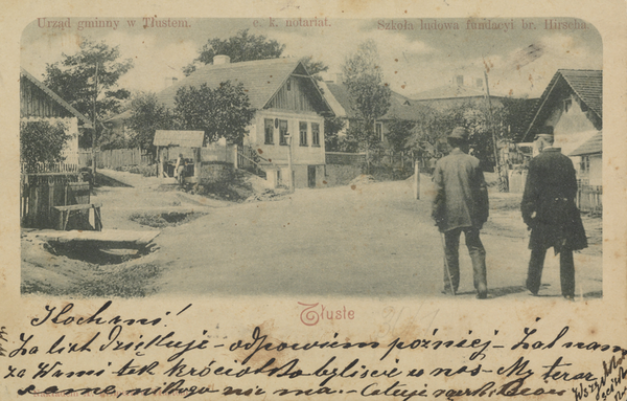 Urząd gminny w Tłustem. c. k. notariat. Szkoła ludowa fundacyi br. Hirscha
Tłuste
Kochani!
Za list dziękuję – odpowiem później – Żal nam
za Wami tak króciótko byliście u nas – My teraz
same, nikogo nie ma – Całuję